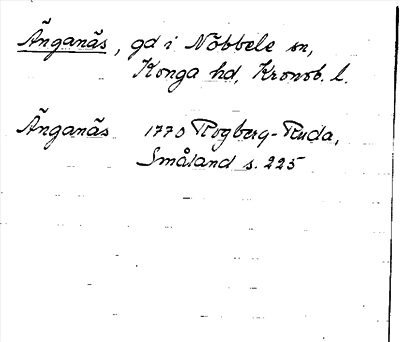 Änganäs, gd i Nöbbele sn,
Konga hd, Kronob. l.
Änganäs 1770 Rogberg-Ruda,
Småland s. 225